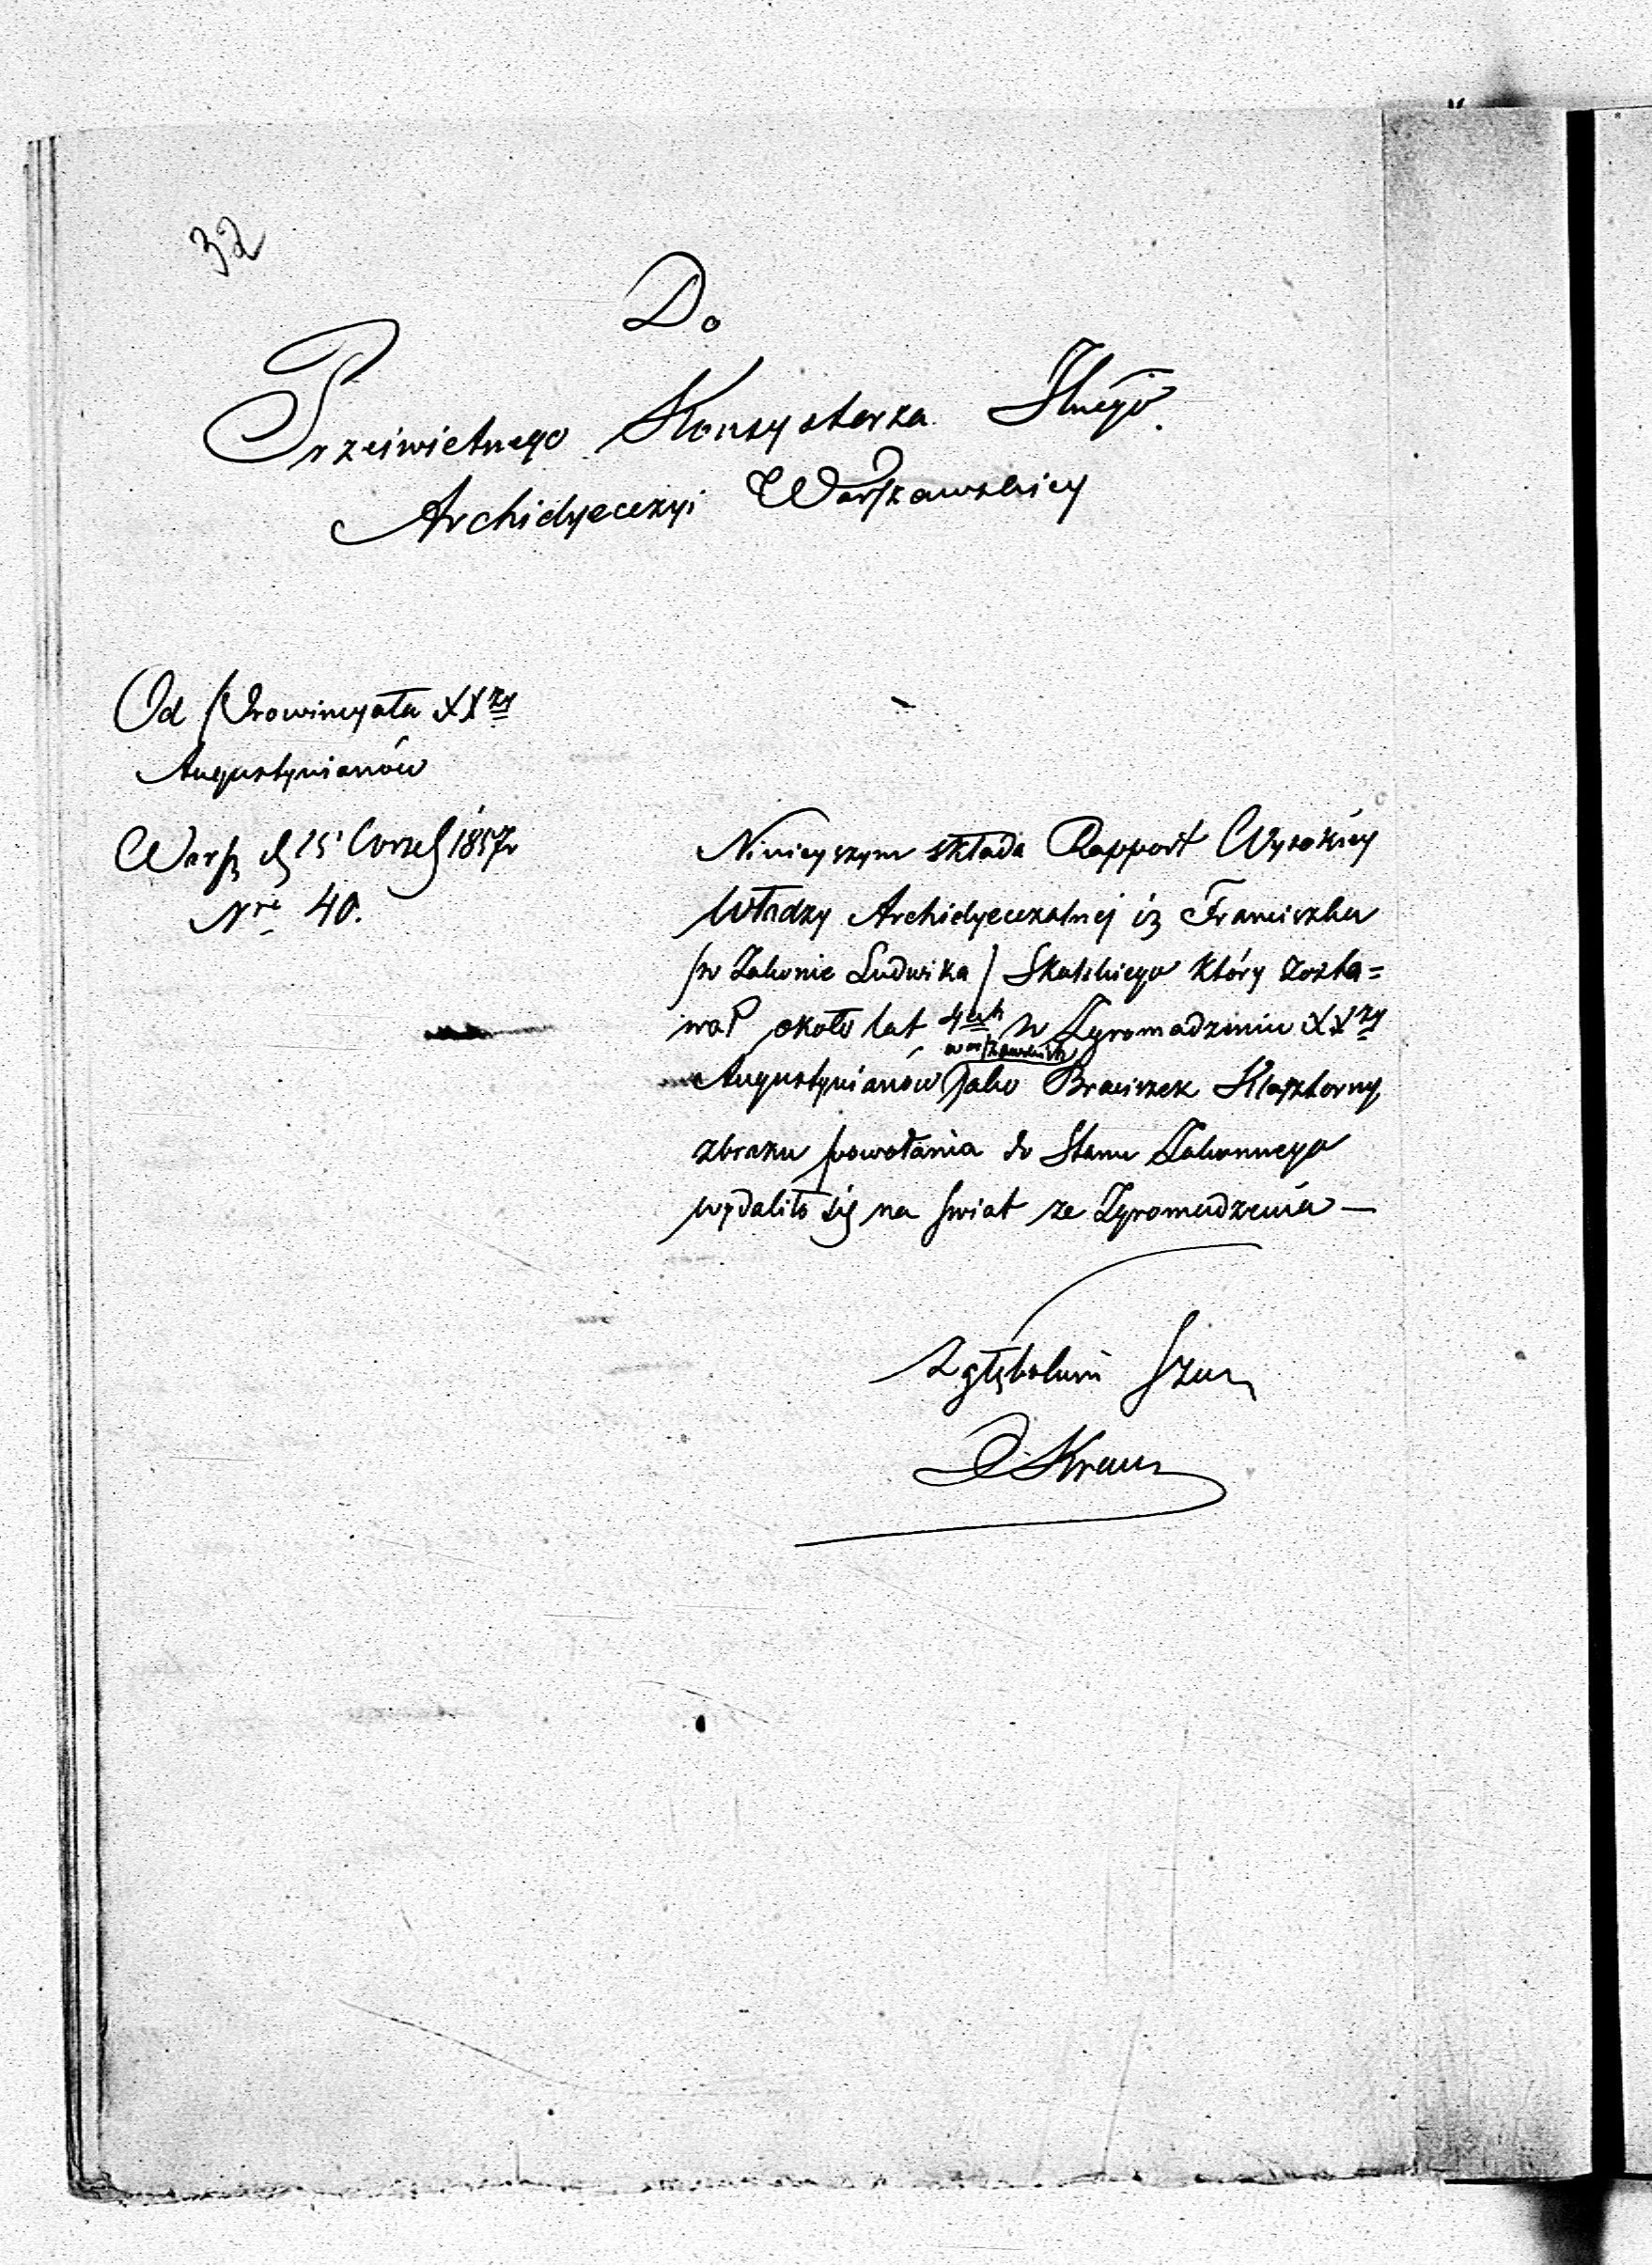 32
Do
Prześwietnego Konsystorza Jlnego.
Archidyecezyi Warszawskiey
Od Prowincyała XXży
Augustynianów
Warsz d 15 1857r
Nro 40.
Ninieyszym składa Rapport Wysokiey
Władzy Archidyecezalnej iż Franciszka
/w Zakonie Ludwika/ Skalskiego który zosta=
wał około lat 4ech w Zgromadzeniu XXży
warszawskich
Augustynianów jako Braciszek Klasztorny
zbraku powołania do Stanu Zakonnego
wydalił się na świat ze Zgromadzenia —
Zgłębokim Szac
Kraus